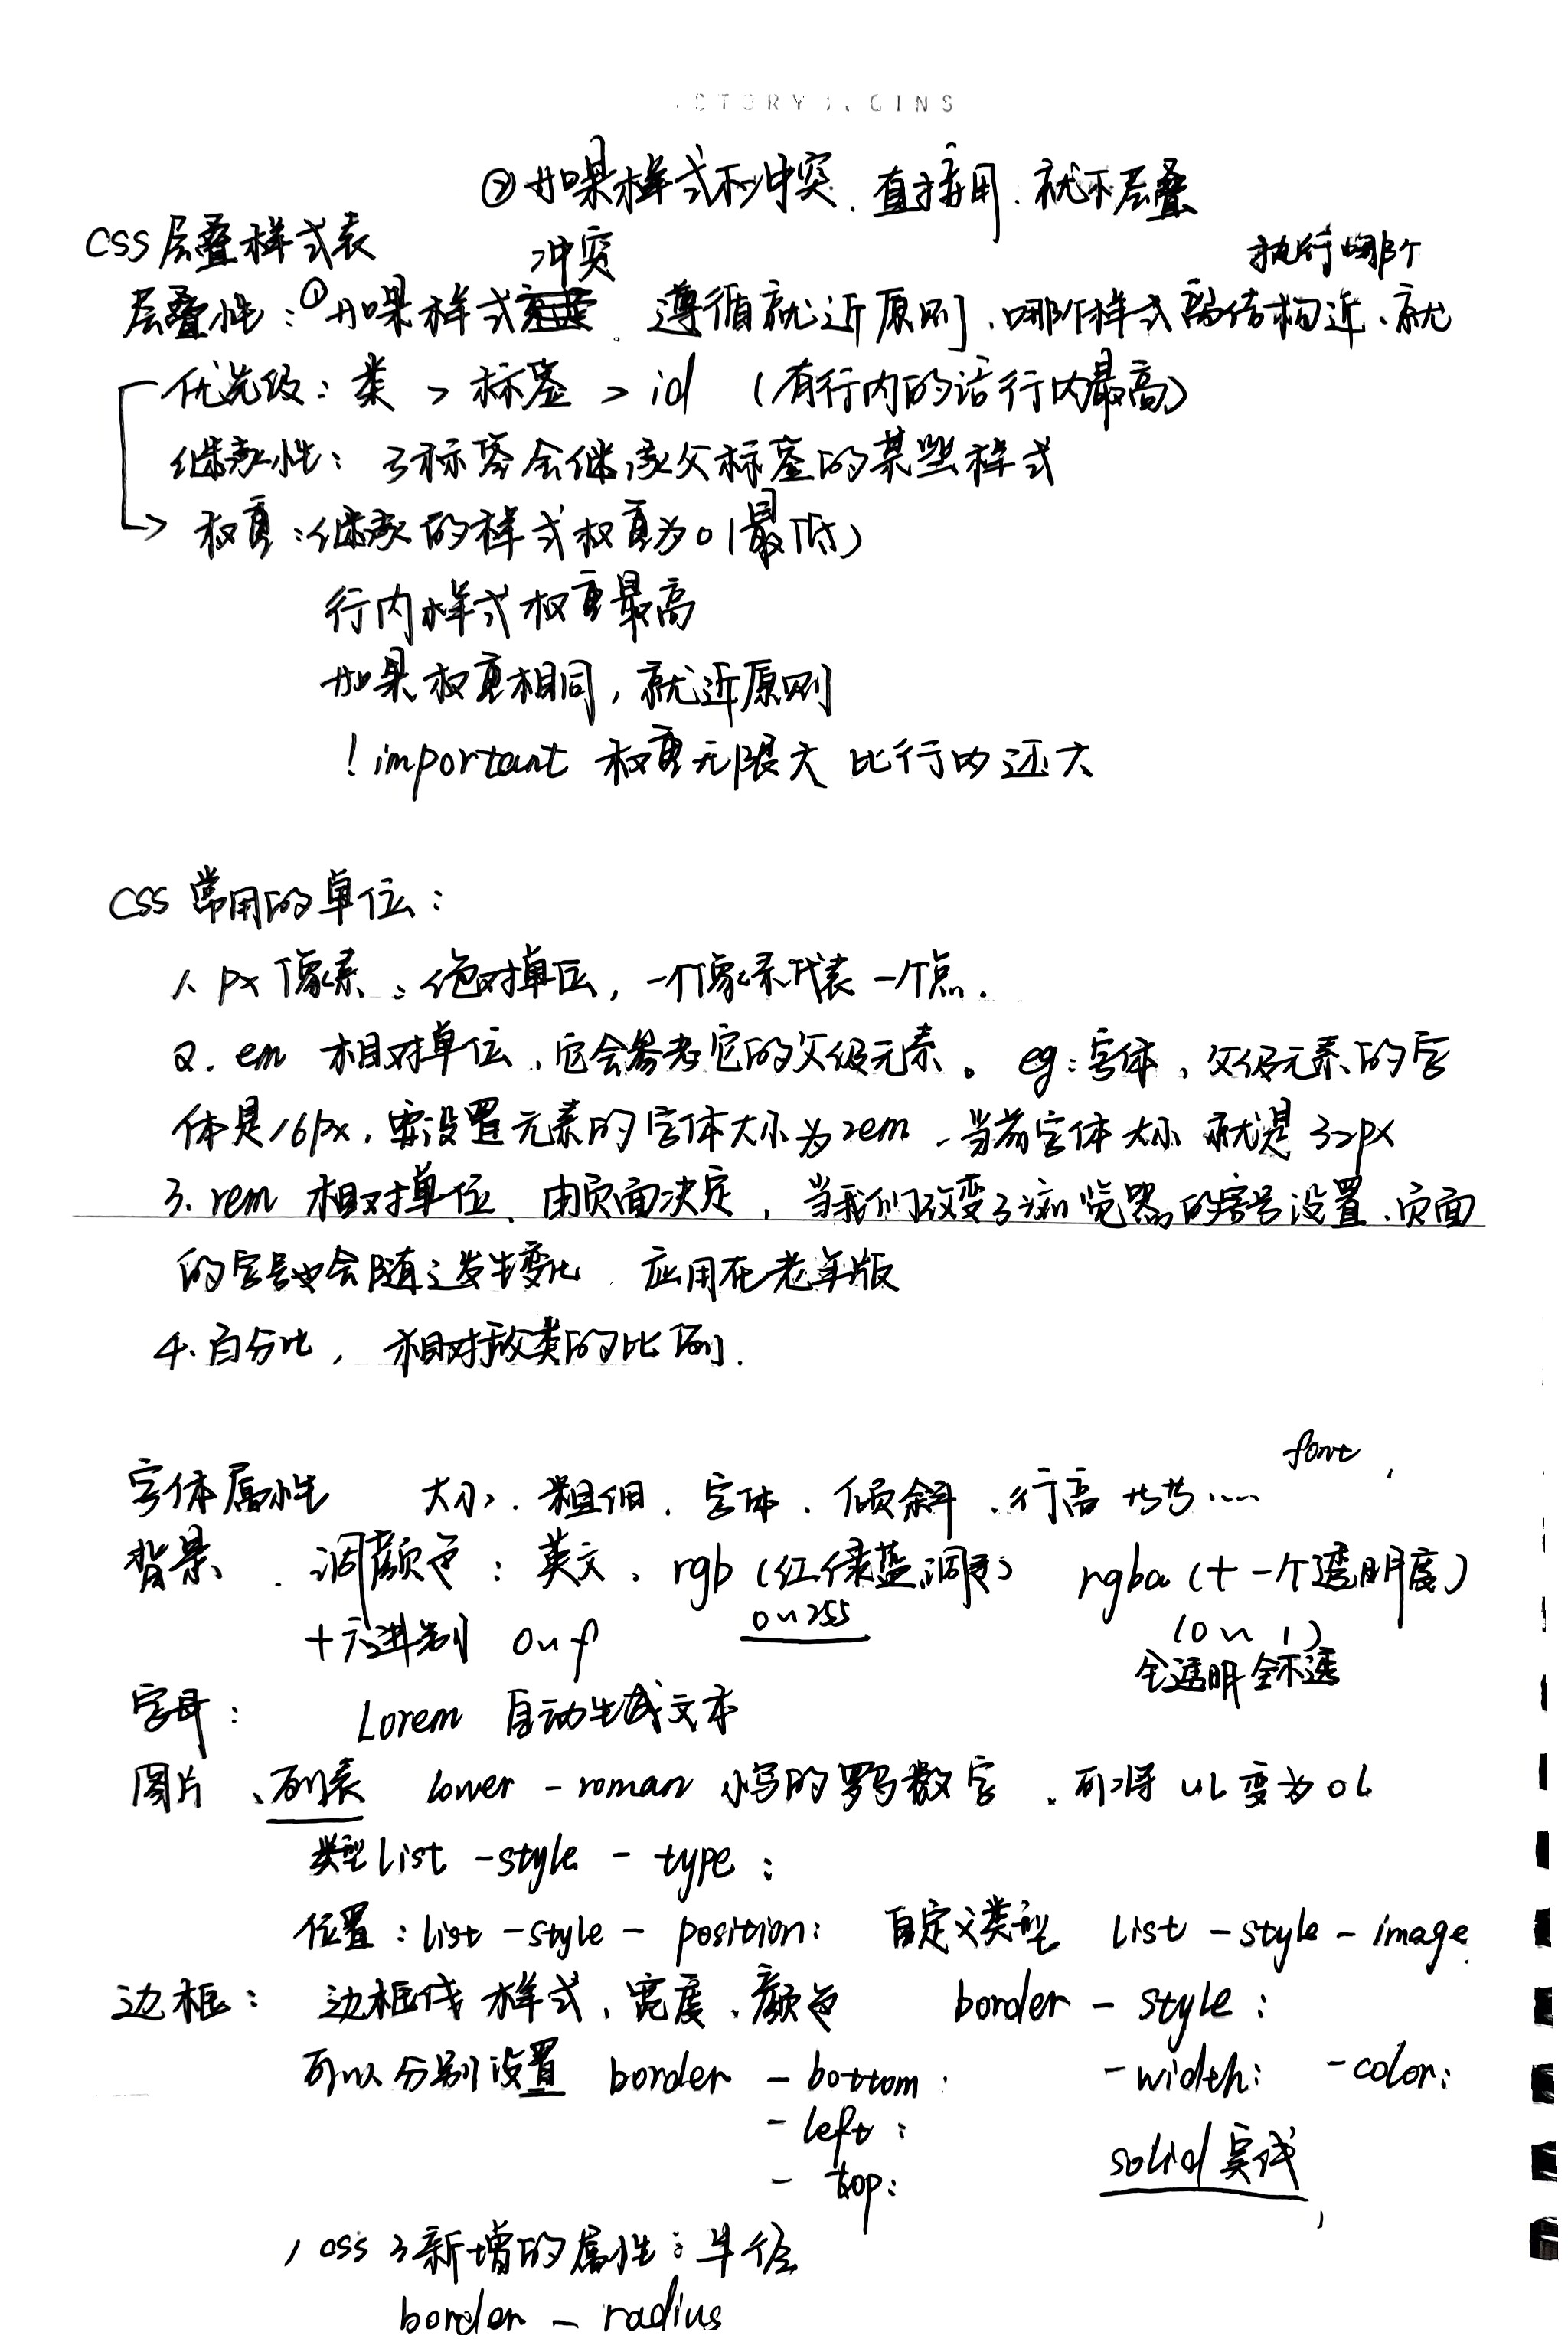 STORY
GINS
②如果样式不冲突、直接用、就不层叠
CSS层叠样式表
冲突
执行哪个
层叠性：①如果样式 遵循就近原则、哪个样式离结构近、就
优先级：类 > 标签 > id （有行内的话行内最高）
继承性：子标签会继承父标签的某些样式
权重：继承的样式权重为0（最低）
行内样式权重最高
如果权重相同，就近原则
!important 权重无限大 比行内还大
CSS 常用的单位：
1. px 像素：绝对单位，一个像素代表一个点.
2. em 相对单位、它会参考它的父级元素。 eg：字体，父级元素的字
体是16px，要设置元素的字体大小为2em、当前字体大小就是32px
3. rem 相对单位、由页面决定，当我们改变了浏览器的字号设置、页面
的字号也会随之发生变化 应用在老年版
4. 百分比，相对于父类的比例.
font
字体属性 大小、粗细、字体、倾斜、行高 等等……
背景、调颜色：英文、rgb（红绿蓝调色） rgba（+一个透明度）
十六进制 0~f 0~255 （0~1）
全透明 全不透
字母： Lorem 自动生成文本
图片、列表 lower-roman 小写的罗马数字、可将ul变为ol
类型 list-style-type：
位置：list-style-position： 自定义类型 list-style-image
边框： 边框线 样式、宽度、颜色 border-style：
可以分别设置 border-bottom： -width： -color：
-left：
-top：
solid 实线
css3新增的属性：半径
border-radius